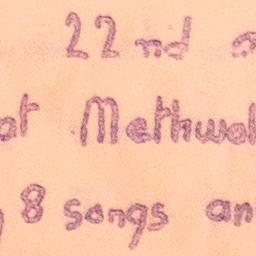 22nd
at Methwol
8 songs an